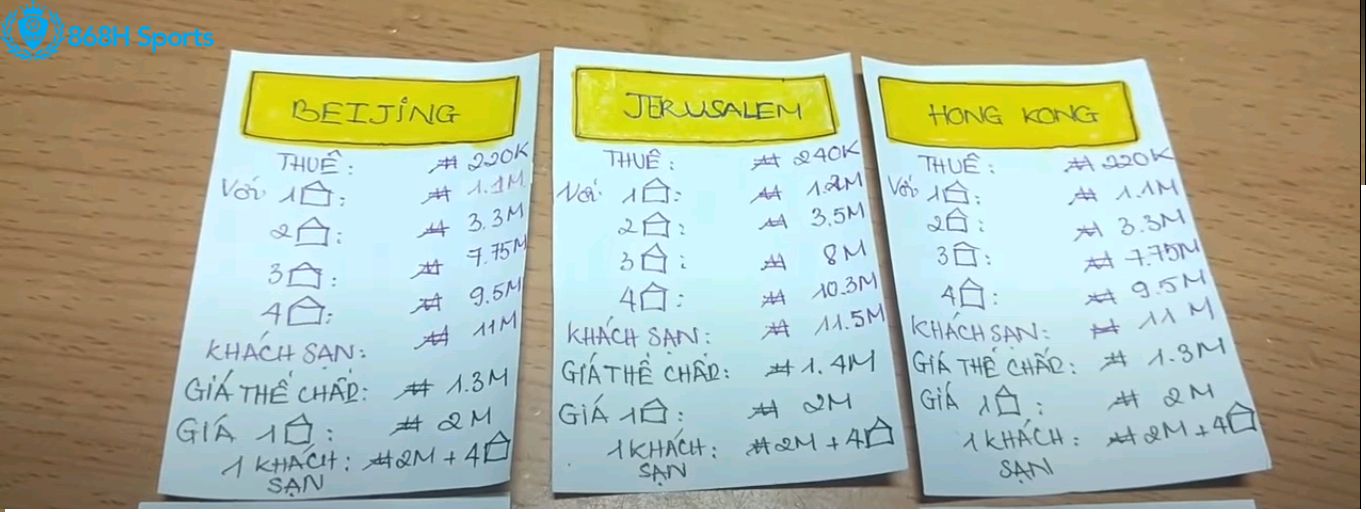 868H Sports
BEIJING
THUÊ: ₩ 220K
Với 1⌂: ₩ 1.1M
2⌂: ₩ 3.3M
3⌂: ₩ 7.75M
4⌂: ₩ 9.5M
KHÁCH SẠN: ₩ 11M
GIÁ THẾ CHẤP: ₩ 1.3M
GIÁ 1⌂: ₩ 2M
1 KHÁCH SẠN: ₩2M + 4⌂
JERUSALEM
THUÊ: ₩ 240K
Với 1⌂: ₩ 1.2M
2⌂: ₩ 3.5M
3⌂: ₩ 8M
4⌂: ₩ 10.3M
KHÁCH SẠN: ₩ 11.5M
GIÁ THẾ CHẤP: ₩ 1.4M
GIÁ 1⌂: ₩ 2M
1 KHÁCH SẠN: ₩2M + 4⌂
HONG KONG
THUÊ: ₩ 220K
Với 1⌂: ₩ 1.1M
2⌂: ₩ 3.3M
3⌂: ₩ 7.75M
4⌂: ₩ 9.5M
KHÁCH SẠN: ₩ 11M
GIÁ THẾ CHẤP: ₩ 1.3M
GIÁ 1⌂: ₩ 2M
1 KHÁCH SẠN: ₩2M + 4⌂